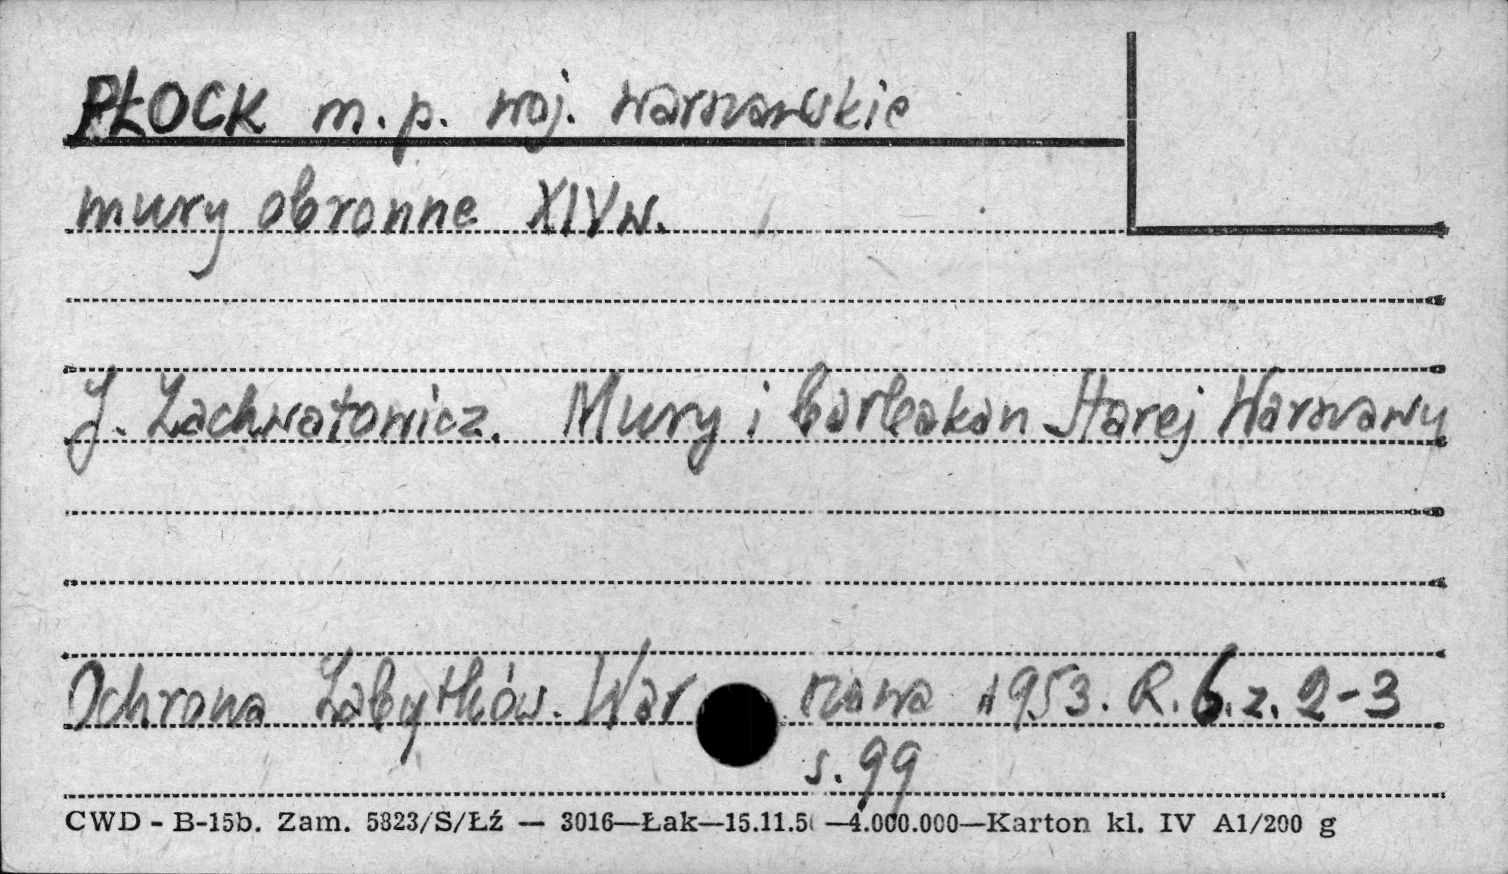 PŁOCK m.p. woj. warszawskie
mury obronne XIV w.
J. Zachwatowicz. Mury i barbakan Starej Warszawy
Ochrona Zabytków. Warszawa 1953. R.6.z. 2-3
s. 99
CWD - B-15b. Zam. 5823/S/Łź — 3016—Łak—15.11.5 —4.000.000—Karton kl. IV A1/200 g